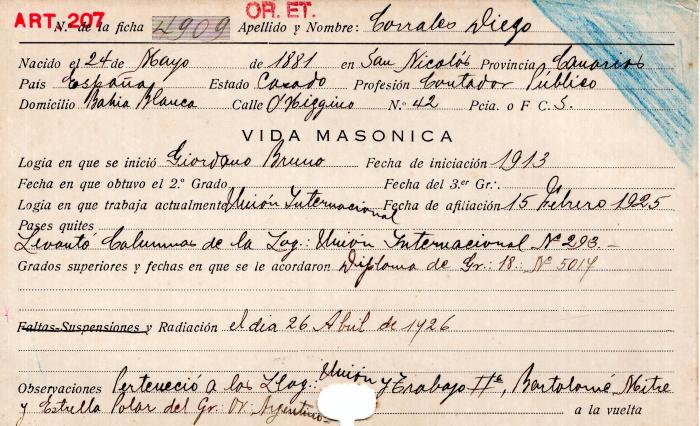 ART. 207
OR. ET.
N.º de la ficha 4909 Apellido y Nombre: Corrales Diego
Nacido el 24 de Mayo de 1881 en San Nicolás Provincia Canarias
País España Estado Casado Profesión Contador Público
Domicilio Bahia Blanca Calle O'Higgins N.º 42 Pcia. o F. C. S.
VIDA MASONICA
Logia en que se inició Giordano Bruno Fecha de iniciación 1913
Fecha en que obtuvo el 2.º Grado Fecha del 3.er Gr.:
Logia en que trabaja actualmente Unión Internacional Fecha de afiliación 15 Febrero 1925
Pases quites
Levantó Columnas de la Log.: Unión Internacional Nº 293.-
Grados superiores y fechas en que se le acordaron Diploma de Gr.: 18.: Nº 5017
Faltas-Suspensiones y Radiación el dia 26 Abril de 1926
Observaciones Perteneció a las LLog.: Unión y Trabajo IIª, Bartolomé Mitre
y Estrella Polar del Gr.: Or. Argentino-
a la vuelta